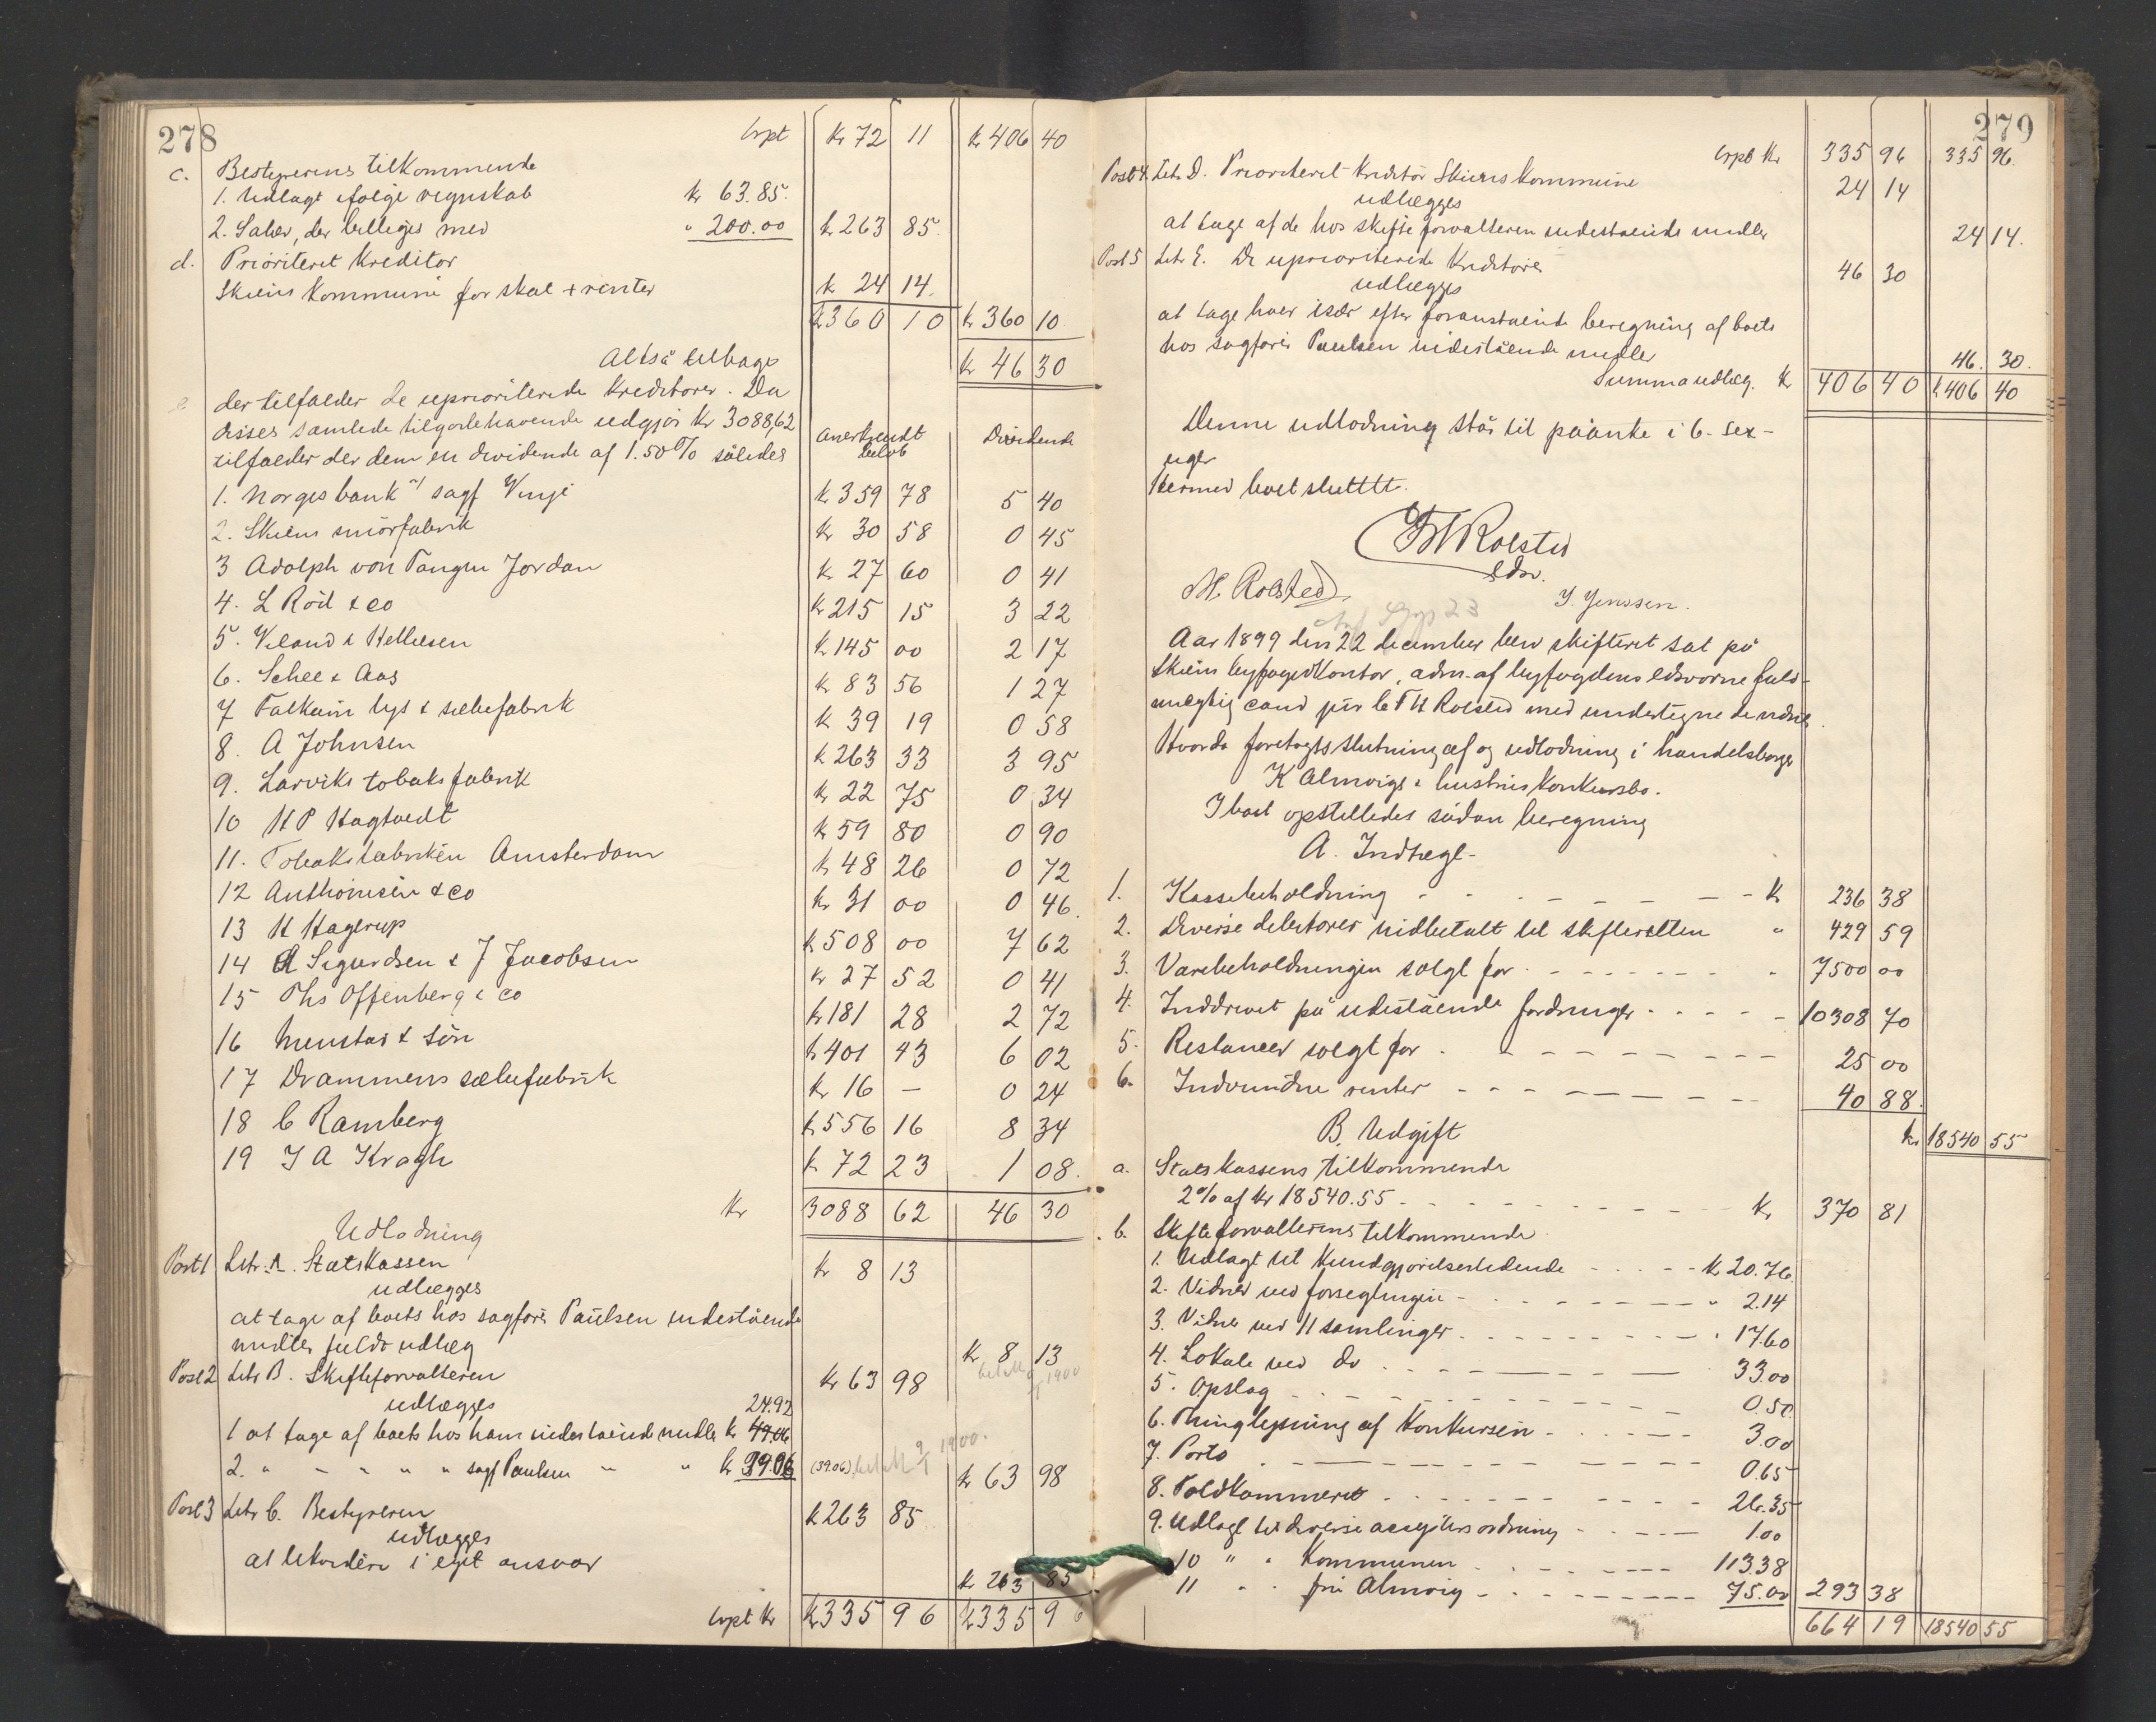 278
Trpt Kr 72 11 Kr 406 40
c. Bestyrerens tilkommende
1. Udlagt ifølge regnskab Kr 63.85.
2. Salær, der billiges med " 200.00 Kr 263 85.
d. Prioriteret Kreditor
Skiens Kommune for skat + renter Kr 24 14.
Kr 360 10 Kr 360 10
Altså tilbage Kr 46 30
e der tilfalder de uprioriterede Kreditorer. Da
disses samlede tilgodehavende udgjør Kr 3088,62
tilfalder der dem en dividende af 1.50 % således
anerkjendt beløb Dividende
1. Norges bank v/ sagf Vinje Kr 359 78 5 40
2. Skiens smørfabrik Kr 30 58 0 45
3 Adolph von Tangen Jordan Kr 27 60 0 41
4. L Röd & Co Kr 215 15 3 22
5. Weland & Hellesen Kr 145 00 2 17
6. Schee & Aas Kr 83 56 1 27
7 Falkum lys & sæbefabrik Kr 39 19 0 58
8. A Johnsen Kr 263 33 3 95
9. Larviks tobaksfabrik Kr 22 75 0 34
10 H P Hagtvedt Kr 59 80 0 90
11. Tobaksfabriken Amsterdam Kr 48 26 0 72
12 Anthonisen & Co Kr 31 00 0 46.
13 H Hagerup Kr 508 00 7 62
14 A Sigurdsen & J Jacobsen Kr 27 52 0 41
15 Ths Offenberg & Co Kr 181 28 2 72
16 Munster & Søn Kr 401 43 6 02
17 Drammens sæbefabrik Kr 16 — 0 24
18 C Ramberg Kr 556 16 8 34
19 J A Kragh Kr 72 23 1 08.
Kr 3088 62 46 30
Udlodning
Post 1 Litr. A. Statskassen Kr 8 13
udlægges
at tage af boets hos sagfører Paulsen indestående
midler fuldt udlæg Kr 8 13
Post 2 Litr B. Skifteforvalteren Kr 63 98
udlægges 24.92
1 at tage af boets hos ham indestående midler Kr 49.06
2. " " " " " sagf Paulsen " " Kr 39.06 (39.06) betalt 9/1 1900. Kr 63 98
Post 3 Litr C. Bestyreren Kr 263 85
udlægges
at likvidere i eget ansvar
Kr 263 85
Trpt Kr Kr 335 96 Kr 335 96
279
Trpt Kr 335 96 335 96.
Post 4. Litr. D. Prioriteret Kreditor Skiens Kommune 24 14
udlægges
at tage af de hos skifteforvalteren indestående midler 24 14.
Post 5 Litr E. De uprioriterede Kreditorer 46 30
udlægges
at tage hver især efter foranstående beregning af boets
hos sagfører Paulsen indestående midler 46. 30.
Summa udlæg. Kr 406 40 Kr 406 40
Denne udlodning står til påanke i 6 - sex -
uger
Hermed boet sluttet.
C T H Rolsted
edsv.
M. Rolsted J. Jenssen.
Aar 1899 den 22 december blev skifteret sat på
Skiens byfogedkontor, adm. af byfogdens edsvorne fuld-
mægtig cand jur C T H Rolsted med undertegnede vidner.
Hvorda foretoges slutning af og udlodning i handelsborger
K Almvigs & hustrus konkursbo.
I boet opstilledes sådan beregning
A. Indtægt -
1. Kassebeholdning Kr 236 38
2. Diverse debitorer indbetalt til skifteretten " 429 59
3. Varebeholdningen solgt for " 7500 00
4. Inddrevet på udestående fordringer 10308 70
5. Restancer solgt for 25 00
6. Indvundne renter 40 88.
Kr 18540 55
B. Udgift
a. Statskassens tilkommende
2 % af Kr 18540.55 Kr 370 81
b. Skifteforvalterens tilkommende
1. Udlagt til Kundgjørelser Kr 20.76.
2. Vidner ved forseglingen " 2.14
3. Vidner ved 11 samlinger " 17.60
4. Lokale ved do 33.00
5. Opslag 0.50
6. Thinglysning af Konkursen 3.00
7. Porto 0.65
8. Toldkammeret 26.35
9. Udlagt til diverse 1.00
10 " " Kommunen 113.38
11 " " fru Almvig 75.00 293 38
664 19 18540 55